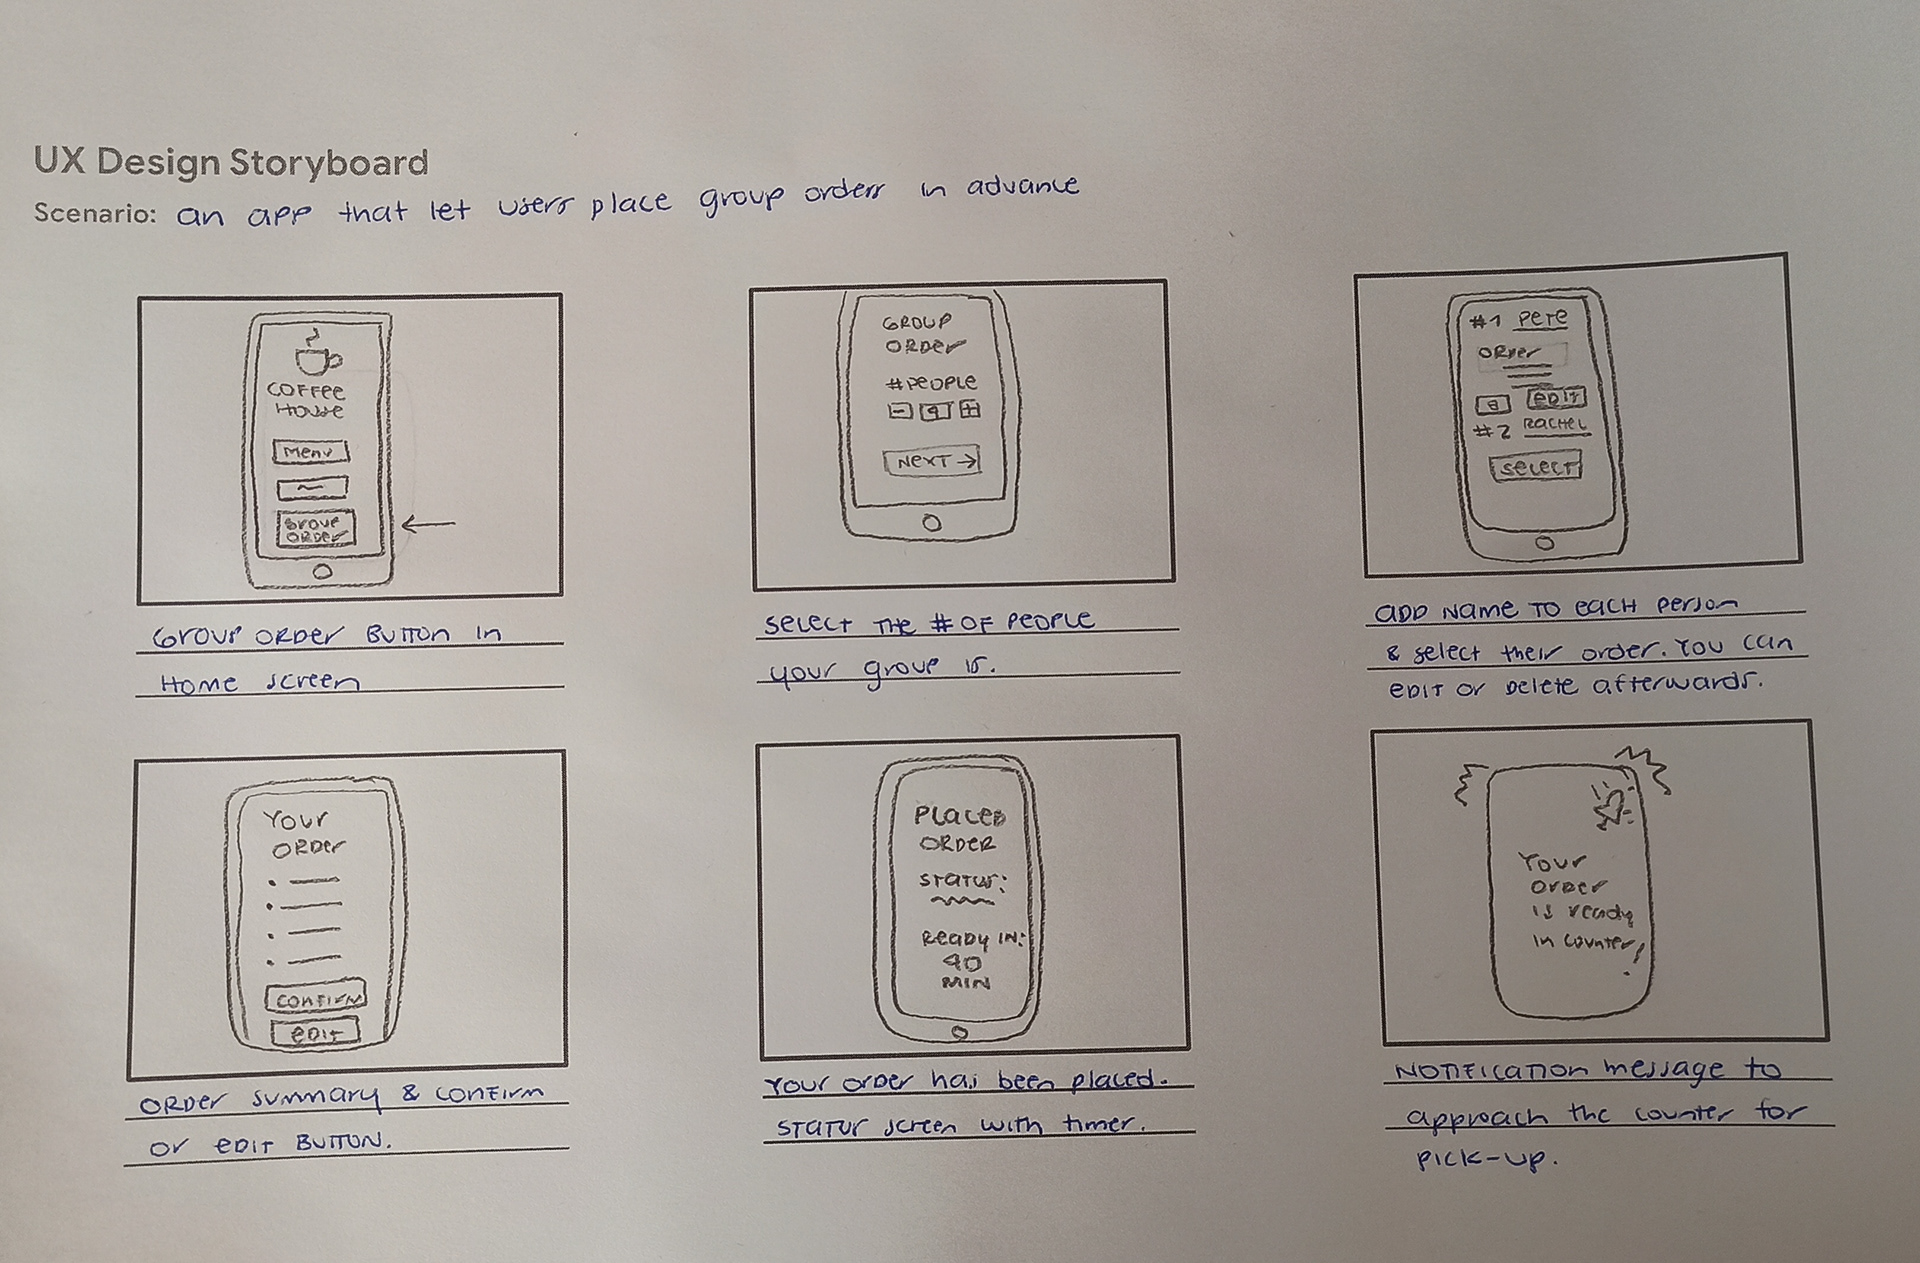 UX Design Storyboard
Scenario: an app that let users place group orders in advance
COFFEE
HOUSE
MENU
GROUP
ORDER
GROUP ORDER BUTTON IN
HOME SCREEN
GROUP
ORDER
#PEOPLE
- 4 +
NEXT →
SELECT THE # OF PEOPLE
your group is.
#1 PETE
ORDER
EDIT
#2 RACHEL
SELECT
ADD NAME TO EACH PERSON
& select their order. You can
EDIT or DELETE afterwards.
YOUR
ORDER
CONFIRM
EDIT
ORDER SUMMARY & CONFIRM
or EDIT BUTTON.
PLACED
ORDER
STATUS:
READY IN:
40
MIN
Your order has been placed.
STATUS screen with timer.
Your
order
is ready
in counter!
NOTIFICATION message to
approach the counter for
PICK-UP.